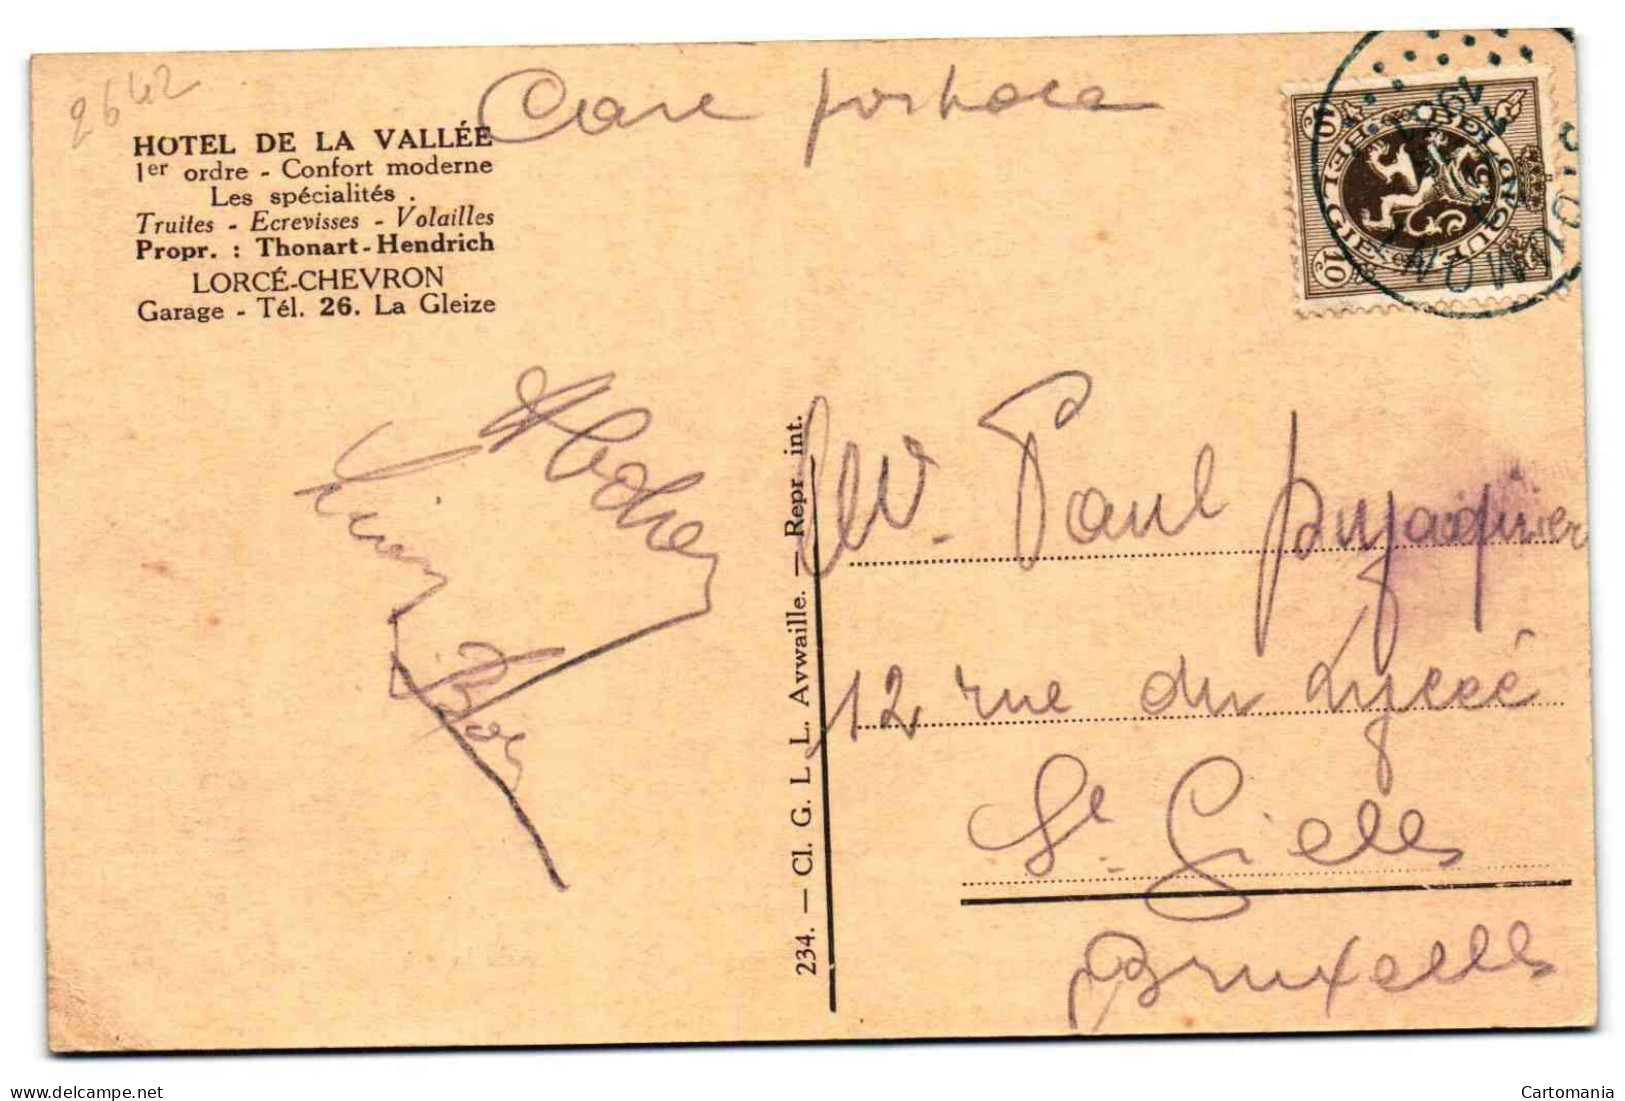 2642
HOTEL DE LA VALLÉE
1er ordre - Confort moderne
Les spécialités.
Truites - Ecrevisses - Volailles
Propr. : Thonart-Hendrich
LORCÉ-CHEVRON
Garage - Tél. 26. La Gleize
BELGIQUE
BELGIË
10c
10c
234. — Cl. G. L. L. Avwaille. — Repr. int.
M. Paul
12 rue du Lycée
St. Gielles
Bruxelles
delcampe.net
Cartomania